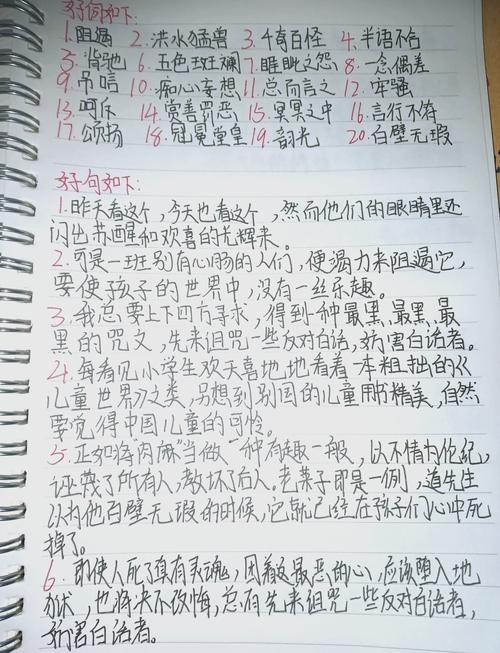 好词如下:
1.阻遏 2.洪水猛兽 3.千奇百怪 4.半语不合
5.背弛 6.五色斑斓 7.睚眦之怨 8.一念偶差
9.吊唁 10.痴心妄想 11.总而言之 12.牢骚
13.呵斥 14.赏善罚恶 15.冥冥之中 16.言行不符
17.颂扬 18.冠冕堂皇 19.韵光 20.白璧无瑕
好句如下:
1.昨天看这个,今天也看这个,然而他们的眼睛里还
闪出苏醒和欢喜的光辉来。
2.可是一班别有心肠的人们,便竭力来阻遏它,
要使孩子的世界中,没有一丝乐趣。
3.我总要上下四方寻求,得到一种最黑、最黑、最
黑的咒文,先来诅咒一些反对白话,妨害白话者。
4.每看见小学生欢天喜地地看着一本粗拙的《
儿童世界》之类,另想到别国的儿童用书精美,自然
要觉得中国儿童的可怜。
5.正如将"肉麻"当做一种有趣一般,以不情为伦纪,
诬蔑了所有人,教坏了后人。老莱子即是一例,道先生
以为他白璧无瑕的时候,它就已经在孩子们心中死
掉了。
6.即使人死了真有灵魂,因着这最恶的心,应该堕入地
狱,也将决不改悔,总有先来诅咒一些反对白话者,
妨害白话者。